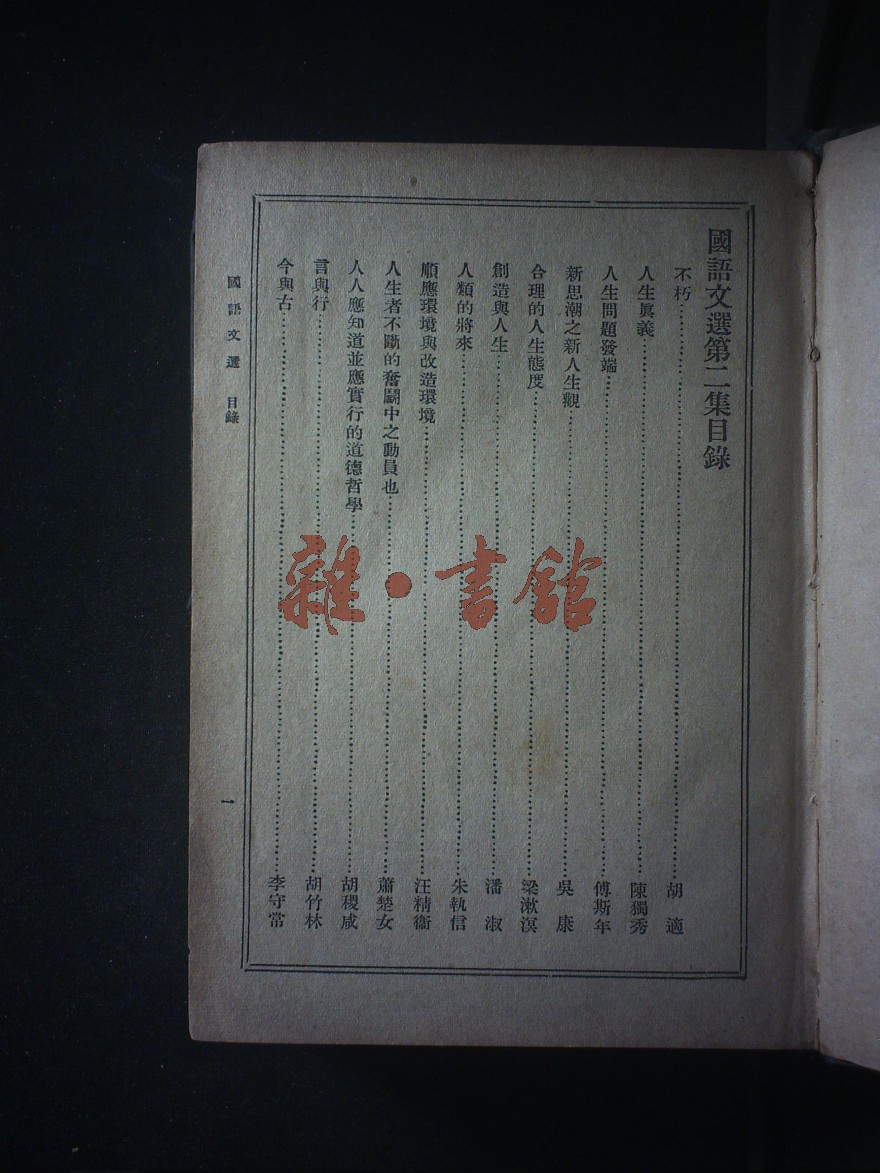 國語文選第二集目錄
不朽……胡適
人生眞義……陳獨秀
人生問題發端……傅斯年
新思潮之新人生觀……吳康
合理的人生態度……梁漱溟
創造與人生……潘淑
人類的將來……朱執信
順應環境與改造環境……汪精衞
人生者不斷的奮鬭中之動員也……蕭楚女
人人應知道並應實行的道德哲學……胡稷咸
言與行……胡竹林
今與古……李守常
國語文選 目錄
一
雜·書館